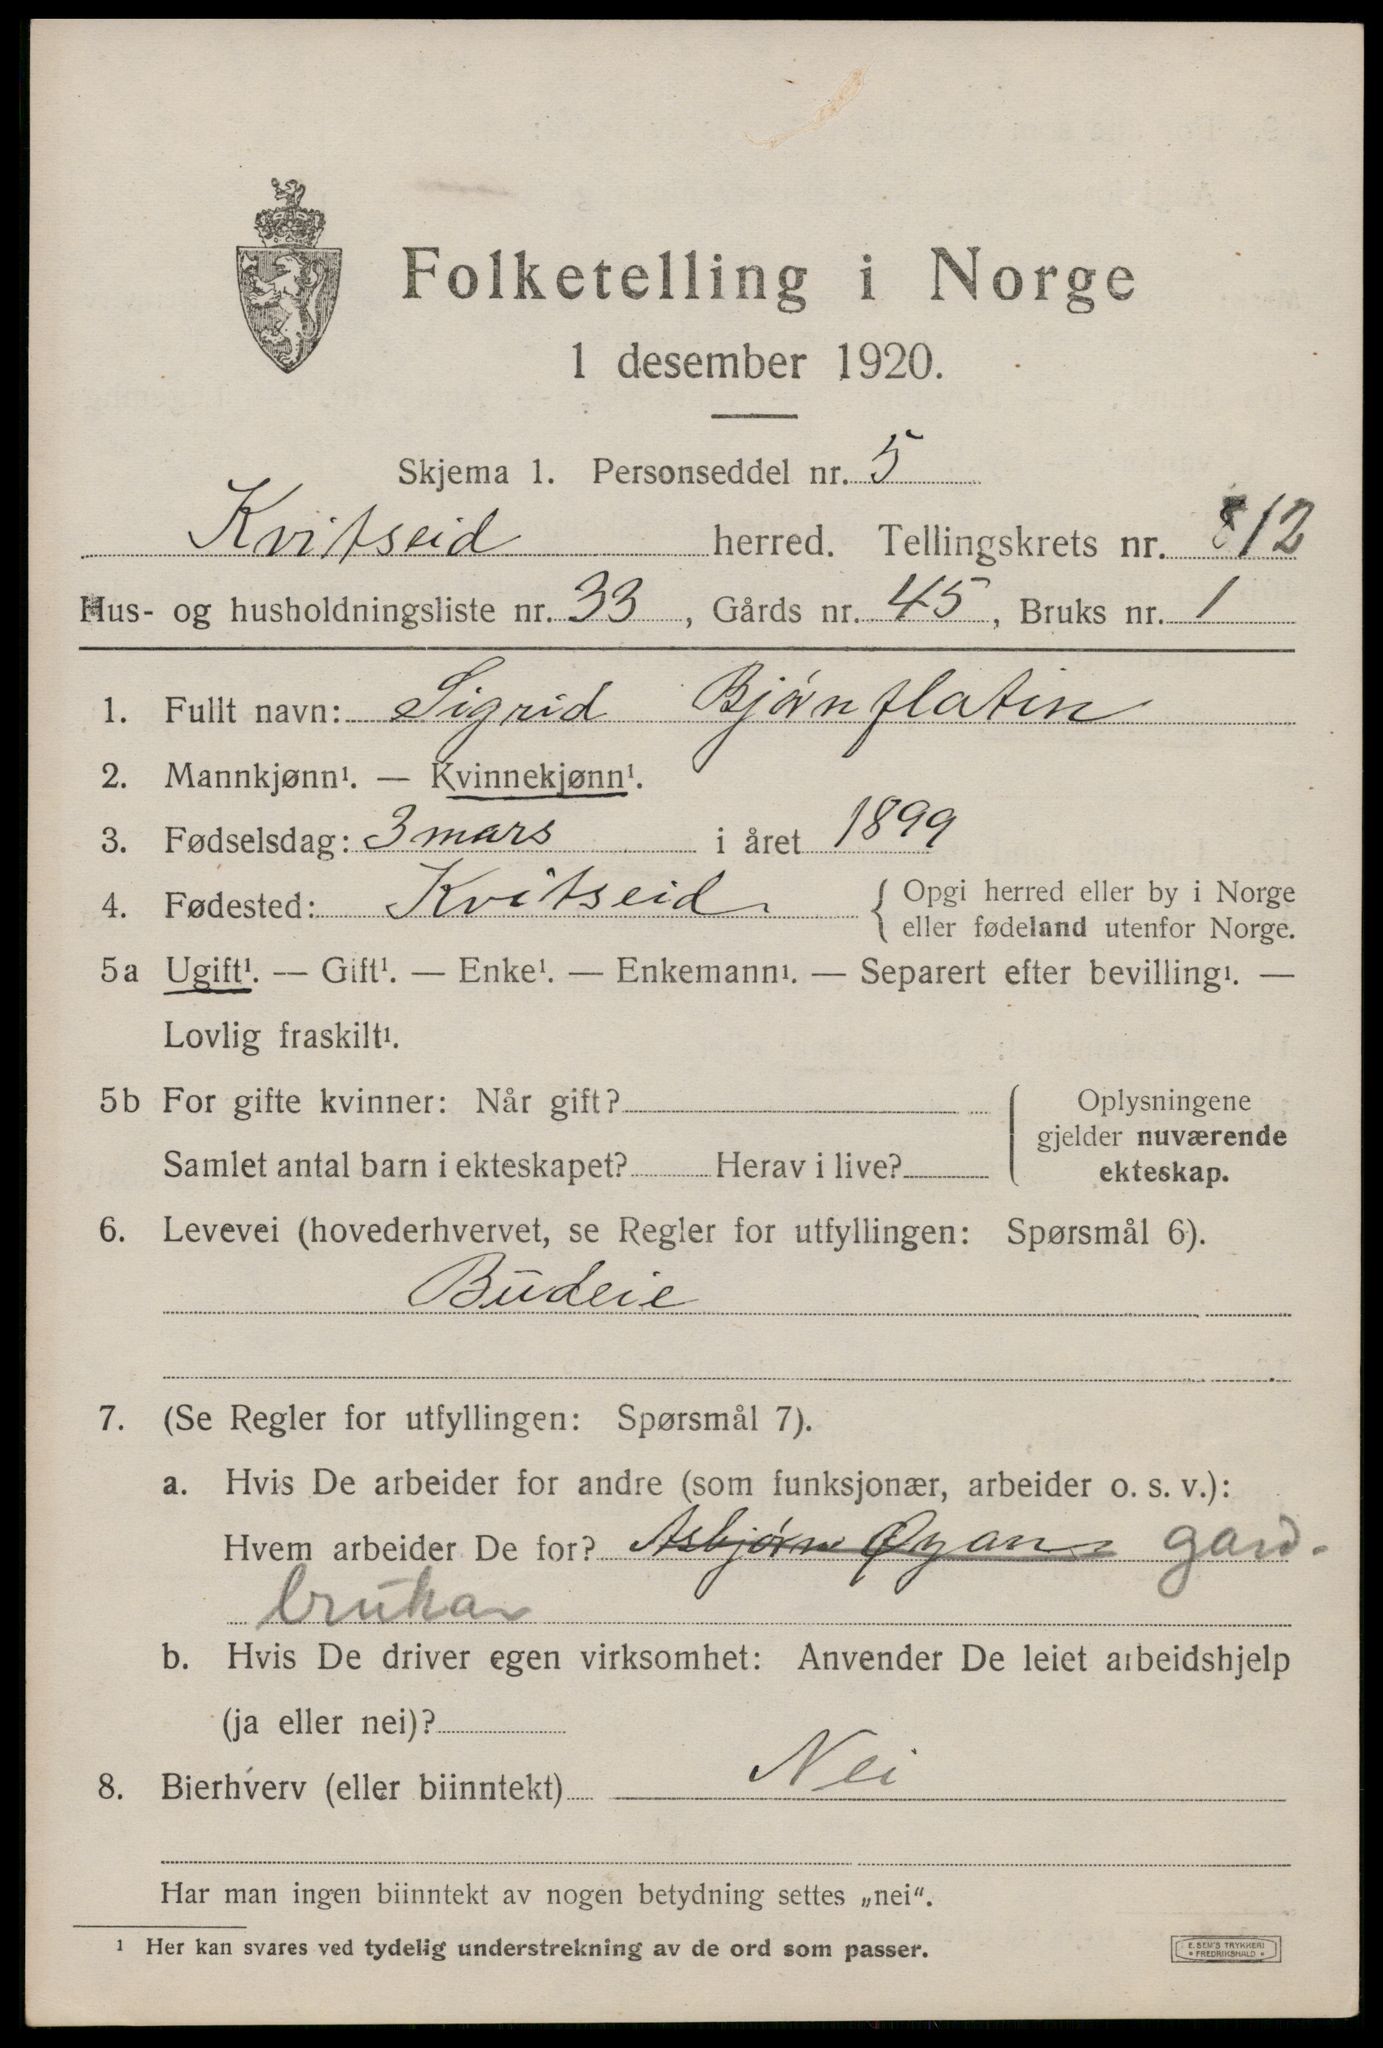 Folketelling i Norge
1 desember 1920.
Skjema 1. Personseddel nr. 5
Kvitseid herred. Tellingskrets nr. 12
Hus- og husholdningsliste nr. 33, Gårds nr. 45, Bruks nr. 1
1. Fullt navn: Sigrid Bjørnflatin
2. Mannkjønn¹. — Kvinnekjønn¹.
3. Fødselsdag: 3 mars i året 1899
4. Fødested: Kvitseid { Opgi herred eller by i Norge
eller fødeland utenfor Norge.
5a Ugift¹. — Gift¹. — Enke¹. — Enkemann¹. — Separert efter bevilling¹. —
Lovlig fraskilt¹.
5b For gifte kvinner: Når gift?
Samlet antal barn i ekteskapet? Herav i live?
Oplysningene
gjelder nuværende
ekteskap.
6. Levevei (hovederhvervet, se Regler for utfyllingen: Spørsmål 6).
Budeie
7. (Se Regler for utfyllingen: Spørsmål 7).
a. Hvis De arbeider for andre (som funksjonær, arbeider o. s. v.):
Hvem arbeider De for? Asbjørn Øyan gard-
brukar
b. Hvis De driver egen virksomhet: Anvender De leiet arbeidshjelp
(ja eller nei)?
8. Bierhverv (eller biinntekt) Nei
Har man ingen biinntekt av nogen betydning settes „nei“.
¹ Her kan svares ved tydelig understrekning av de ord som passer.
E. SEM'S TRYKKERI
FREDRIKSHALD